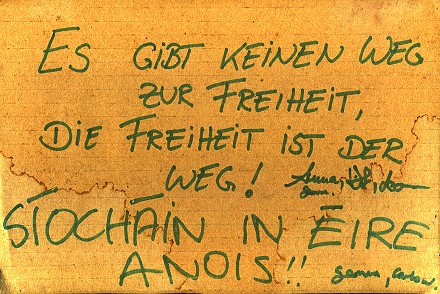 Es GIBT KEINEN WEG
ZUR FREIHEIT,
DIE FREIHEIT IST DER
WEG!
SÍOCHÁIN IN ÉIRE
ANOIS!!